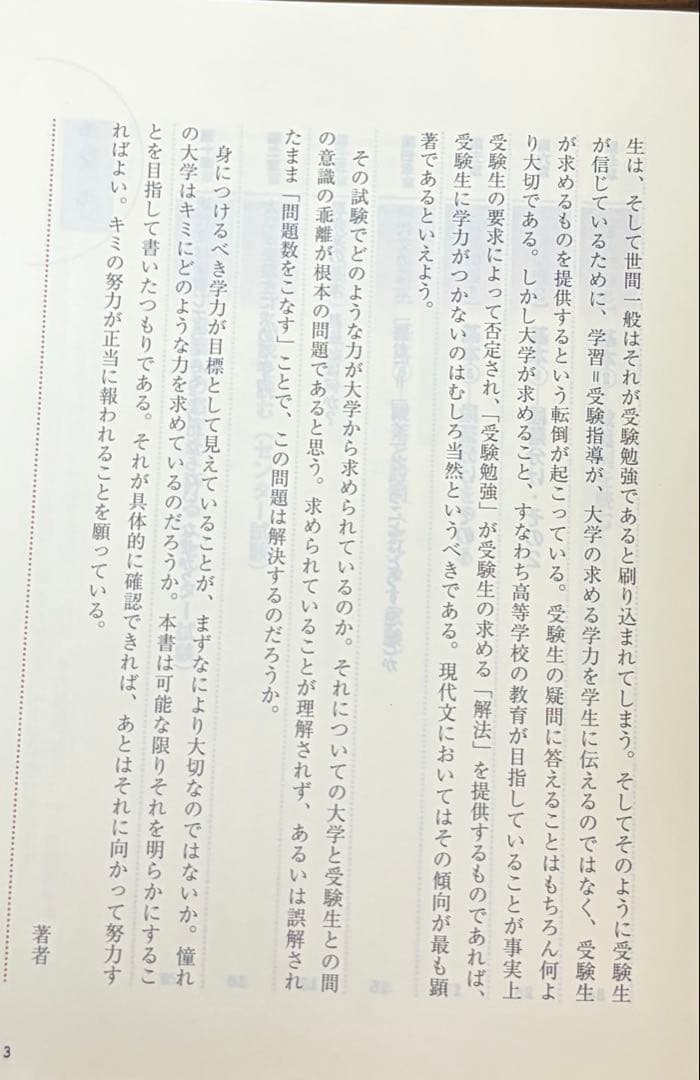 生は、そして世間一般はそれが受験勉強であると刷り込まれてしまう。そしてそのように受験生
が信じているために、学習＝受験指導が、大学の求める学力を学生に伝えるのではなく、受験生
が求めるものを提供するという転倒が起こっている。受験生の疑問に答えることはもちろん何よ
り大切である。しかし大学が求めること、すなわち高等学校の教育が目指していることが事実上
受験生の要求によって否定され、「受験勉強」が受験生の求める「解法」を提供するものであれば、
受験生に学力がつかないのはむしろ当然というべきである。現代文においてはその傾向が最も顕
著であるといえよう。
その試験でどのような力が大学から求められているのか。それについての大学と受験生との間
の意識の乖離が根本の問題であると思う。求められていることが理解されず、あるいは誤解され
たまま「問題数をこなす」ことで、この問題は解決するのだろうか。
身につけるべき学力が目標として見えていることが、まずなにより大切なのではないか。憧れ
の大学はキミにどのような力を求めているのだろうか。本書は可能な限りそれを明らかにするこ
とを目指して書いたつもりである。それが具体的に確認できれば、あとはそれに向かって努力す
ればよい。キミの努力が正当に報われることを願っている。
著者
3